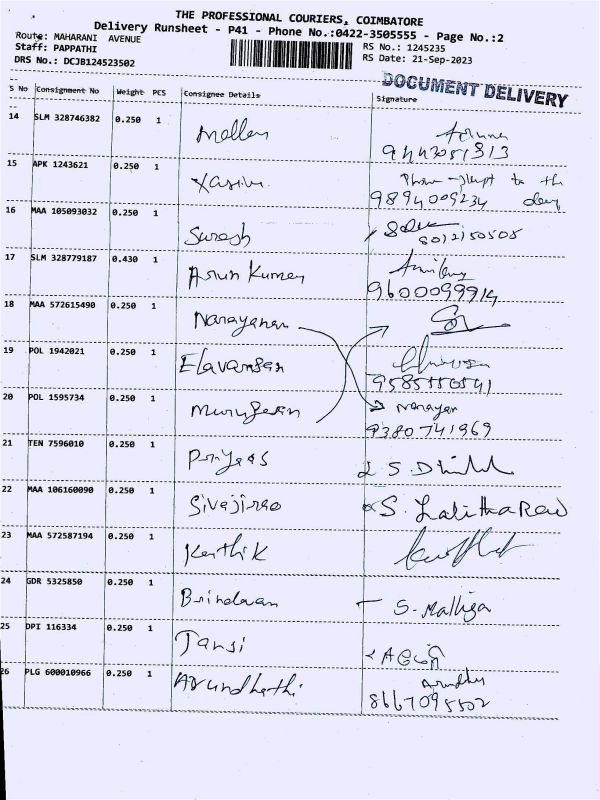 THE PROFESSIONAL COURIERS, COIMBATORE
Delivery Runsheet - P41 - Phone No.:0422-3505555 - Page No.:2
Route: MAHARANI AVENUE
RS No.: 1245235
Staff: PAPPATHI
RS Date: 21-Sep-2023
DRS No.: DCJB124523502
DOCUMENT DELIVERY
S No Consignment No Weight PCS Consignee Details Signature
14 SLM 328746382 0.250 1
15 APK 1243621 0.250 1
9894009234
16 MAA 105093032 0.250 1 Suresh
8012150505
17 SLM 328779187 0.430 1 Arun Kumar
9600099914
18 MAA 572615490 0.250 1 Narayanan
19 POL 1942021 0.250 1 Elavarsan
20 POL 1595734 0.250 1 Murugesan Narayan
9380741969
21 TEN 7596010 0.250 1
22 MAA 106160090 0.250 1 Sivajirao S. Lalitha Rao
23 MAA 572587194 0.250 1 Karthik
24 GDR 5325850 0.250 1 Brindavan S. Malliga
25 DPI 116334 0.250 1 Jansi
26 PLG 600010966 0.250 1 Arundhathi
8667095502